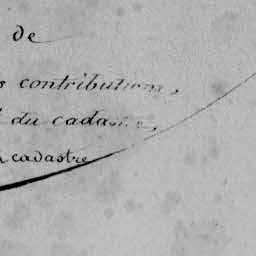 de
contributions,
du cadastre,
cadastre